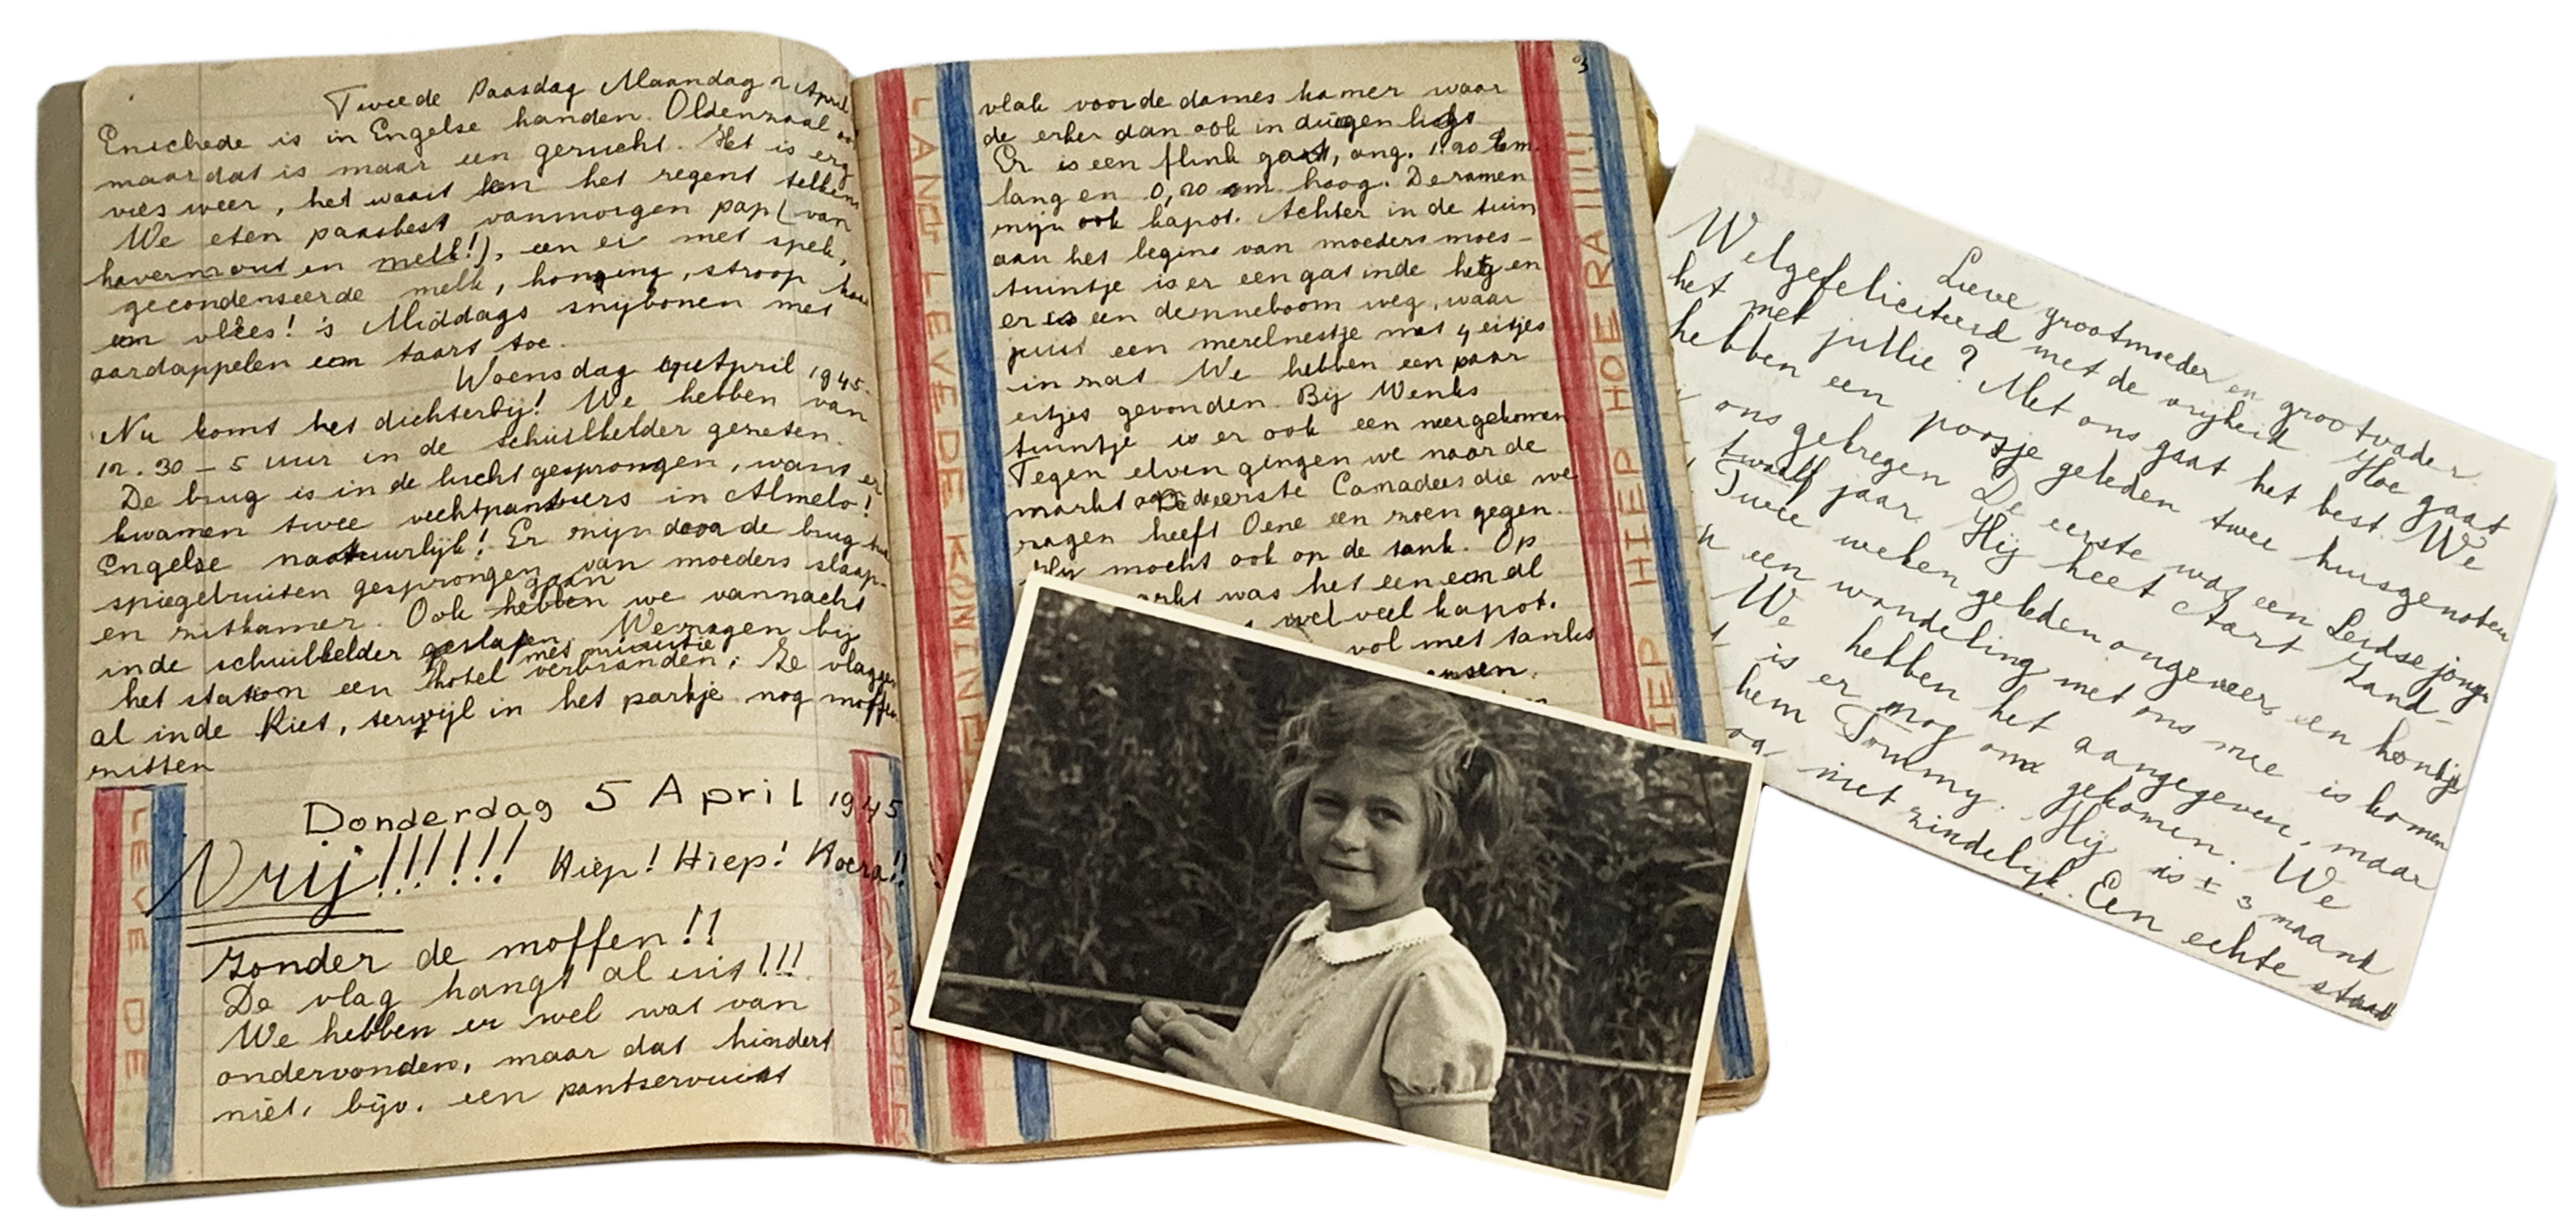 Tweede Paasdag Maandag 2 April
Enschede is in Engelse handen. Oldenzaal
maar dat is maar een gerucht. Het is erg
vies weer, het waait en het regent telkens
We eten paasbest vanmorgen pap (van
havermout en melk!), een ei met spek,
gecondenseerde melk, honing, stroop
en vlees! 's Middags snijbonen met
aardappelen en taart toe.
Woensdag 4 April 1945.
Nu komt het dichterbij! We hebben van
12.30 - 5 uur in de schuilkelder gezeten.
De brug is in de lucht gesprongen, want er
kwamen twee vechtpantsers in Almelo!
Engelse natuurlijk! Er zijn door de brug
spiegelruiten gesprongen van moeders slaap-
en zitkamer. Ook gaan we vannacht
in de schuilkelder slapen. We zagen bij
het station een hotel met munitie verbranden. Ze vlaggen
al in de Riet, terwijl in het parkje nog moffen
zitten
Donderdag 5 April 1945
Vrij!!!!!! Hiep! Hiep! Hoera!!
Zonder de moffen!!
De vlag hangt al uit!!!
We hebben er wel wat van
ondervonden, maar dat hindert
niet, bijv. een pantservuist
LEVE DE
LANG LEVE DE KONINGIN
3
vlak voor de dames kamer waar
de erker dan ook in duigen ligt
Er is een flink gat, ong. 1.20 m
lang en 0,20 m hoog. De ramen
zijn ook kapot. Achter in de tuin
aan het begin van moeders moes-
tuintje is er een gat in de heg en
er is een denneboom weg, waar
juist een merelnestje met 4 eitjes
in zat. We hebben een paar
eitjes gevonden. Bij Wenks
tuintje is er ook een neergekomen
Tegen elven gingen we naar de
markt De eerste Canadees die we
zagen heeft Oene een zoen gegen.
Hij mocht ook op de tank. Op
markt was het een en al
wel veel kapot.
vol met tanks
ensen.
HIEP HIEP HOERA !!!!!
Lieve grootmoeder en grootvader
Welgefeliciteerd met de vrijheid. Hoe gaat
het met jullie? Met ons gaat het best. We
hebben een poosje geleden twee huisgenoten
ons gekregen De eerste was een Leidse jongen
twaalf jaar. Hij heet Aart Zand-
Twee weken geleden ongeveer is een hondje
een wandeling met ons mee is komen
We hebben het aangegeven, maar
is er nog om gekomen. We
hem Tommy. Hij is ± 3 maand
niet zindelijk. Een echte straat